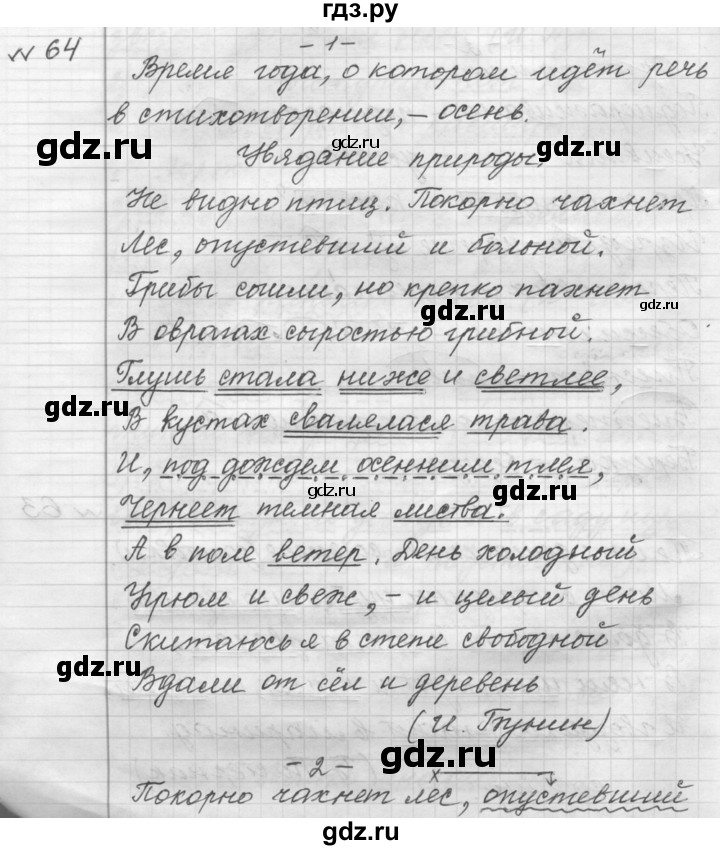 гдз.ру
№ 64
- 1 -
Время года, о котором идёт речь
в стихотворении, – осень.
gdz.ru gdz.ru gdz.ru
Увядание природы.
Не видно птиц. Покорно чахнет
gdz.ru
Лес, опустевший и больной.
Грибы сошли, но крепко пахнет
gdz.ru gdz.ru
В оврагах сыростью грибной.
Глушь стала ниже и светлее,
gdz.ru
В кустах свалялася трава.
И, под дождем осенним тлея,
gdz.ru gdz.ru
Чернеет темная листва.
А в поле ветер. День холодный
gdz.ru
Угрюм и свеж, – и целый день
Скитаюсь я в степе свободной
gdz.ru gdz.ru
Вдали от сёл и деревень
(И. Бунин)
gdz.ru
- 2 -
х
Покорно чахнет лес, опустевший
gdz.ru
gdz.ru